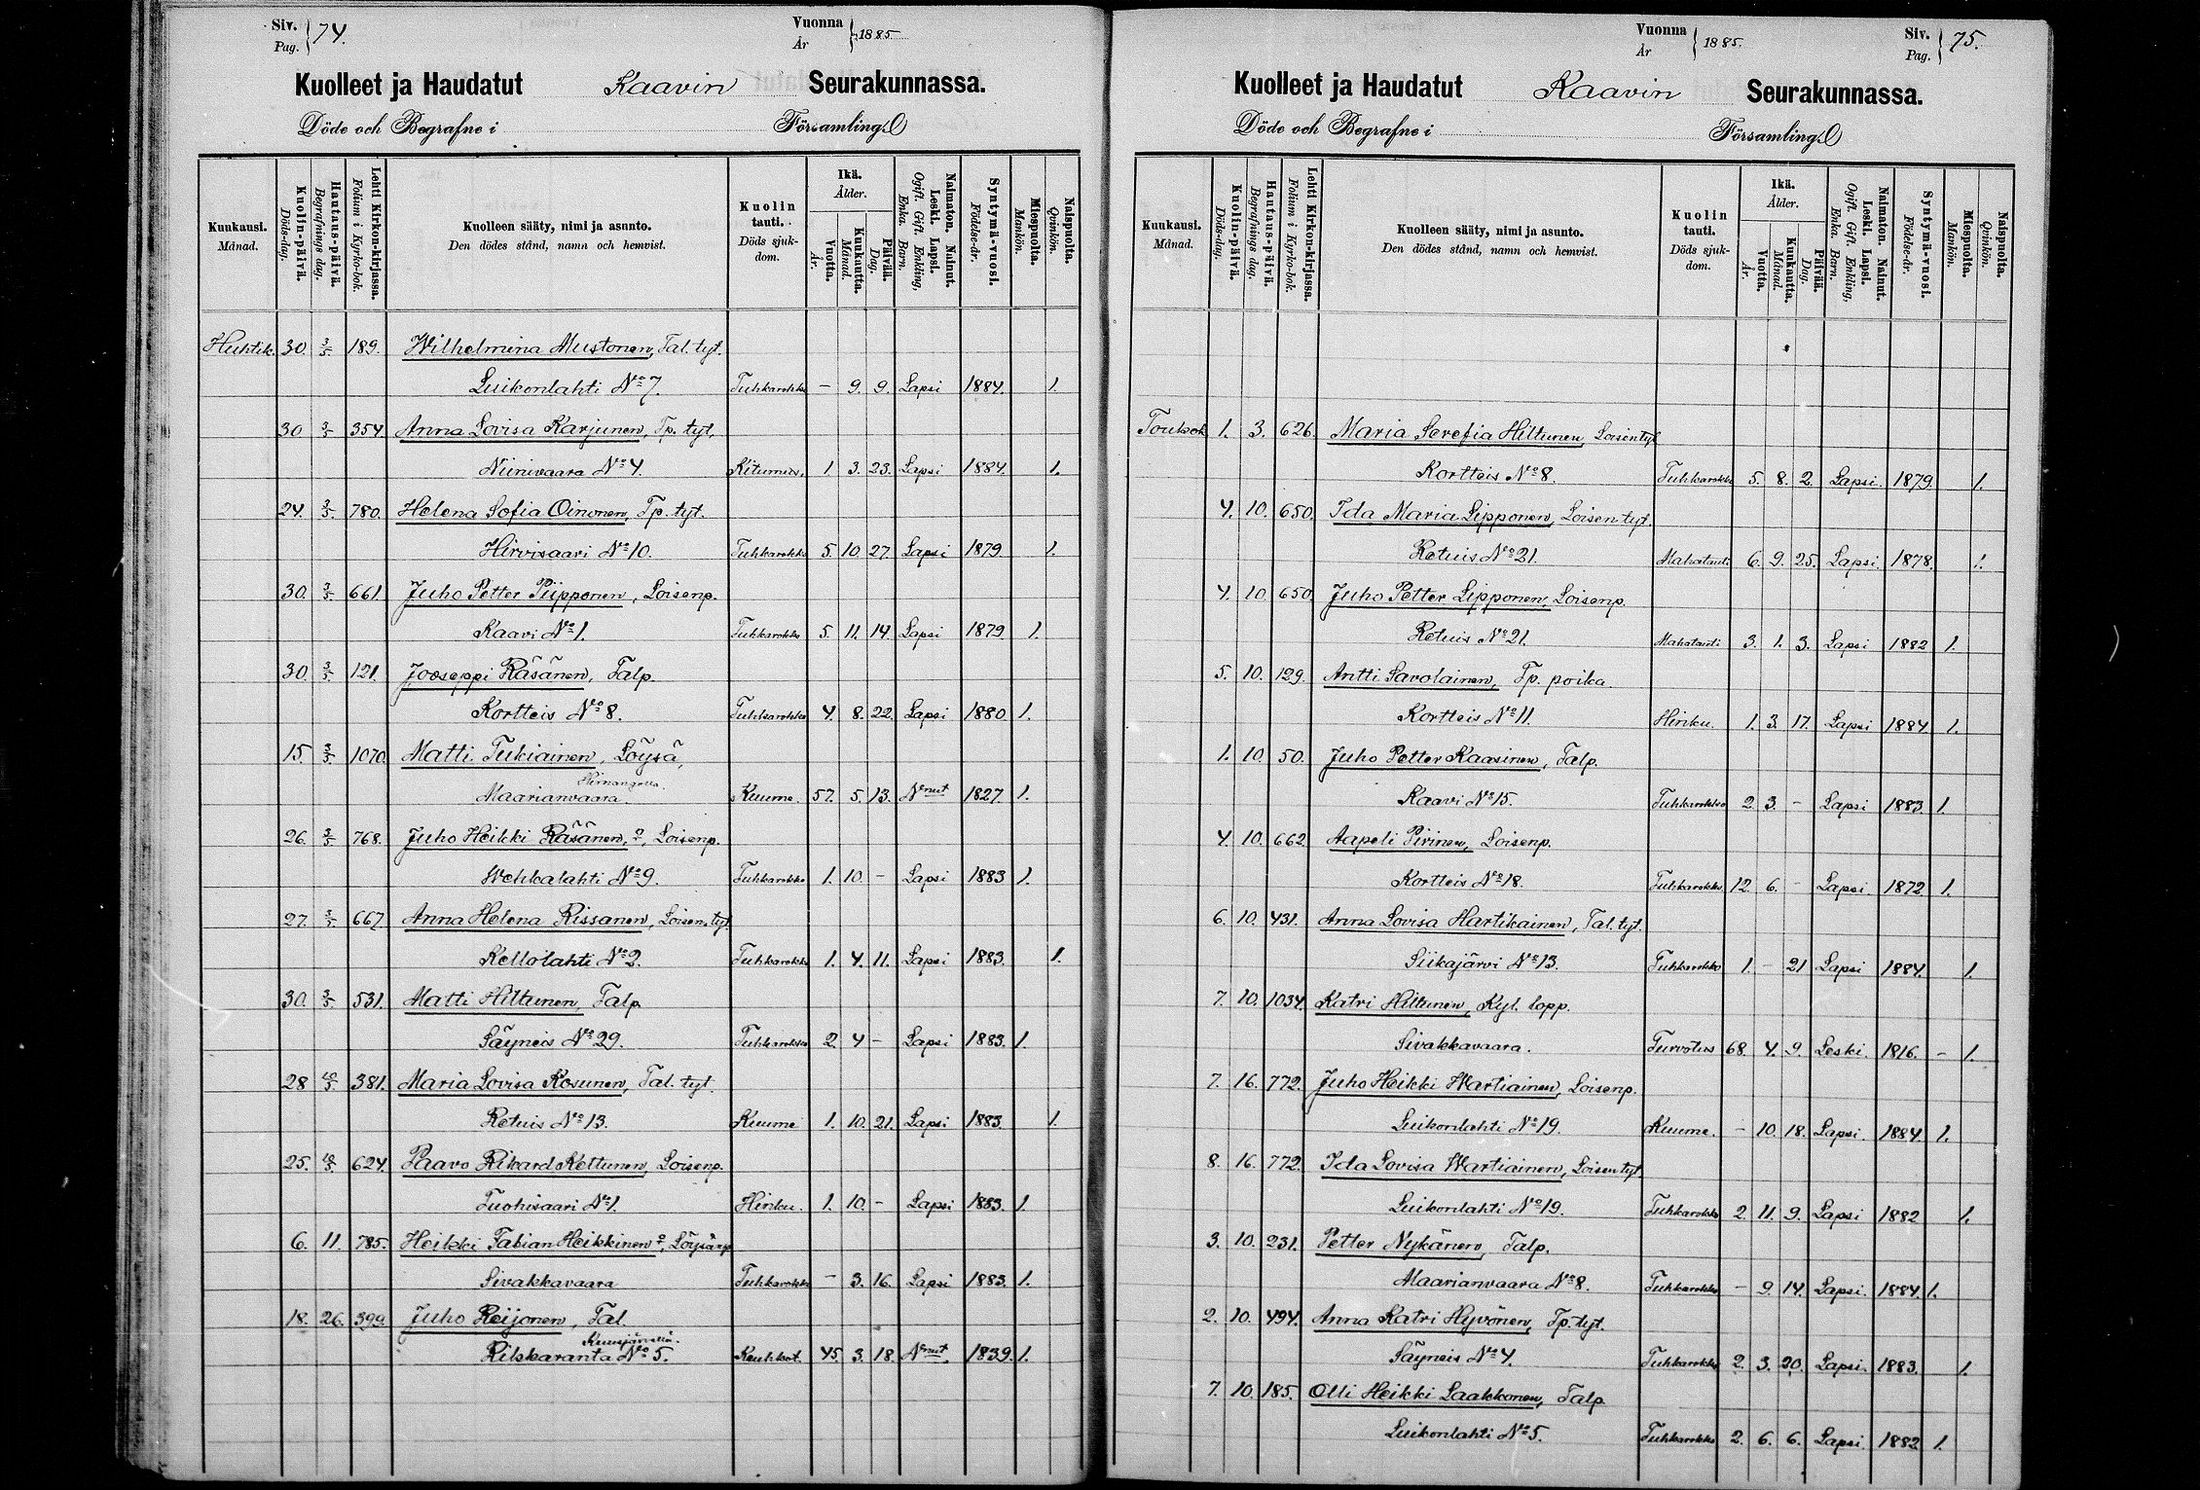 Siv. Pag. 74.
Vuonna År 1885
Kuolleet ja Haudatut Kaavin Seurakunnassa.
Döde och Begrafne i Församling.
Kuukausi. Månad.
Kuolin-päivä. Döds-dag.
Hautaus-päivä. Begrafnings dag.
Lehti Kirkon-kirjassa. Folium i Kyrko-bok.
Kuolleen sääty, nimi ja asunto. Den dödes stånd, namn och hemvist.
Kuolin tauti. Döds sjuk-dom.
Ikä. Ålder.
Vuotta. År.
Kuukautta. Månad.
Päivää. Dag.
Naimaton. Nainut. Leski. Lapsi. Ogift. Gift. Enkling, Enka. Barn.
Syntymä-vuosi. Födelse-år.
Miespuolta. Mankön.
Naispuolta. Qvinkön.
Huhtik. 30. 3/5 189. Wilhelmina Mustonen, Tal. tyt.
Luikonlahti No 7. Tuhkarokko - 9. 9. Lapsi 1884. 1.
30 3/5 354 Anna Lovisa Karjunen, Tp. tyt.
Niinivaara No 4. Kitumus. 1 3. 23. Lapsi 1884. 1.
24. 3/5. 780. Helena Sofia Oinonen, Tp. tyt.
Hirvisaari No 10. Tuhkarokko 5. 10. 27. Lapsi 1879. 1.
30. 3/5 661. Juho Petter Piipponen, Loisenp.
Kaavi No 1. Tuhkarokko 5. 11. 14. Lapsi 1879 1.
30. 3/5. 121. Jooseppi Räsänen, Talp.
Kortteis No 8. Tuhkarokko 4. 8. 22. Lapsi 1880 1.
15. 3/5 1070. Matti Tukiainen, Löysä,
Maarianvaara. Kuume. 57. 5. 13. Nnut 1827. 1.
26. 3/5 768. Juho Heikki Räsänen, o, Loisenp.
Wehkalahti No 9. Tuhkarokko 1. 10. - Lapsi 1883 1.
27. 3/5 667. Anna Helena Rissanen, Loisen. tyt.
Kellolahti No 2. Tuhkarokko 1. 4. 11. Lapsi 1883. 1.
30. 3/5 531. Matti Hiltunen, Talp.
Säyneis No 29. Tuhkarokko 2. 4 - Lapsi 1883. 1.
28 10/5 381. Maria Lovisa Kosunen, Tal. tyt.
Retuis No 13. Kuume 1. 10. 21. Lapsi 1883. 1.
25. 10/5 624. Paavo Rikard Kettunen, Loisenp.
Tuohisaari No 1. Hinku. 1. 10. - Lapsi 1883. 1.
6. 11. 785. Heikki Fabian Heikkinen o, Löysänp
Sivakkavaara Tuhkarokko - 3. 16. Lapsi 1883. 1.
18. 26. 399. Juho Reijonen, Tal.
Kuusjärvellä.
Rikkaranta No 5. Keuhkot. 45. 3. 18. Nnut. 1839. 1.
Vuonna År 1885.
Siv. Pag. 75.
Kuolleet ja Haudatut Kaavin Seurakunnassa.
Döde och Begrafne i Församling.
Kuukausi. Månad.
Kuolin-päivä. Döds-dag.
Hautaus-päivä. Begrafnings dag.
Lehti Kirkon-kirjassa. Folium i Kyrko-bok.
Kuolleen sääty, nimi ja asunto. Den dödes stånd, namn och hemvist.
Kuolin tauti. Döds sjuk-dom.
Ikä. Ålder.
Vuotta. År.
Kuukautta. Månad.
Päivää. Dag.
Naimaton. Nainut. Leski. Lapsi. Ogift. Gift. Enkling, Enka. Barn.
Syntymä-vuosi. Födelse-år.
Miespuolta. Mankön.
Naispuolta. Qvinkön.
Toukok. 1. 3. 626. Maria Serefia Hiltunen, Loisen tyt
Kortteis No 8. Tuhkarokko 5. 8. 2. Lapsi. 1879. 1.
4. 10. 650. Ida Maria Lipponen, Loisen tyt.
Retuis No 21. Mahatauti 6. 9. 25. Lapsi. 1878. 1.
4. 10 650. Juho Petter Lipponen, Loisenp.
Retuis No 21. Mahatauti 3. 1. 3. Lapsi 1882 1.
5. 10. 129. Antti Savolainen, Tp. poika.
Kortteis No 11. Hinku. 1. 3. 17. Lapsi 1884 1.
1. 10 50. Juho Petter Kaasinen, Talp.
Kaavi No 15. Tuhkarokko 2. 3. - Lapsi 1883. 1.
4. 10. 662. Aapeli Pirinen, Loisenp.
Kortteis No 18. Tuhkarokko 12. 6. - Lapsi. 1872. 1.
6. 10. 431. Anna Lovisa Hartikainen, Tal. tyt.
Siikajärvi No 13. Tuhkarokko 1. - 21 Lapsi 1884. 1.
7. 10. 1034. Katri Hiltunen, Kyl. lopp.
Sivakkavaara. Turvotus 68. 4. 9. Leski. 1816. - 1.
7. 16. 772. Juho Heikki Wartiainen, Loisenp.
Luikonlahti No 19. Kuume. - 10. 18. Lapsi. 1884 1.
8. 16. 772. Ida Lovisa Wartiainen, Loisen tyt.
Luikonlahti No 19. Tuhkarokko 2. 11. 9. Lapsi 1882 1.
3. 10. 231. Petter Nykänen, Talp.
Maarianvaara No 8. Tuhkarokko - 9. 14. Lapsi. 1884. 1.
2. 10. 494. Anna Katri Hyvönen, Tp. tyt.
Säyneis No 4. Tuhkarokko 2. 3. 20. Lapsi. 1883. 1.
7. 10. 185. Olli Heikki Laakkonen, Talp
Luikonlahti No 5. Tuhkarokko 2. 6. 6. Lapsi. 1882. 1.